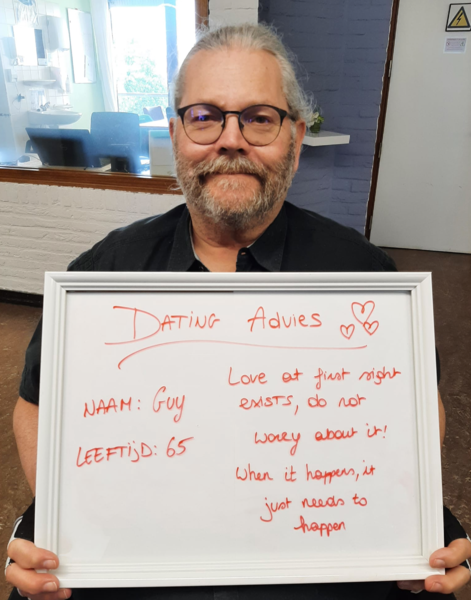 Dating Advies
NAAM: Guy
LEEFTIJD: 65
Love at first sight
exists, do not
worry about it!
When it happens, it
just needs to
happen